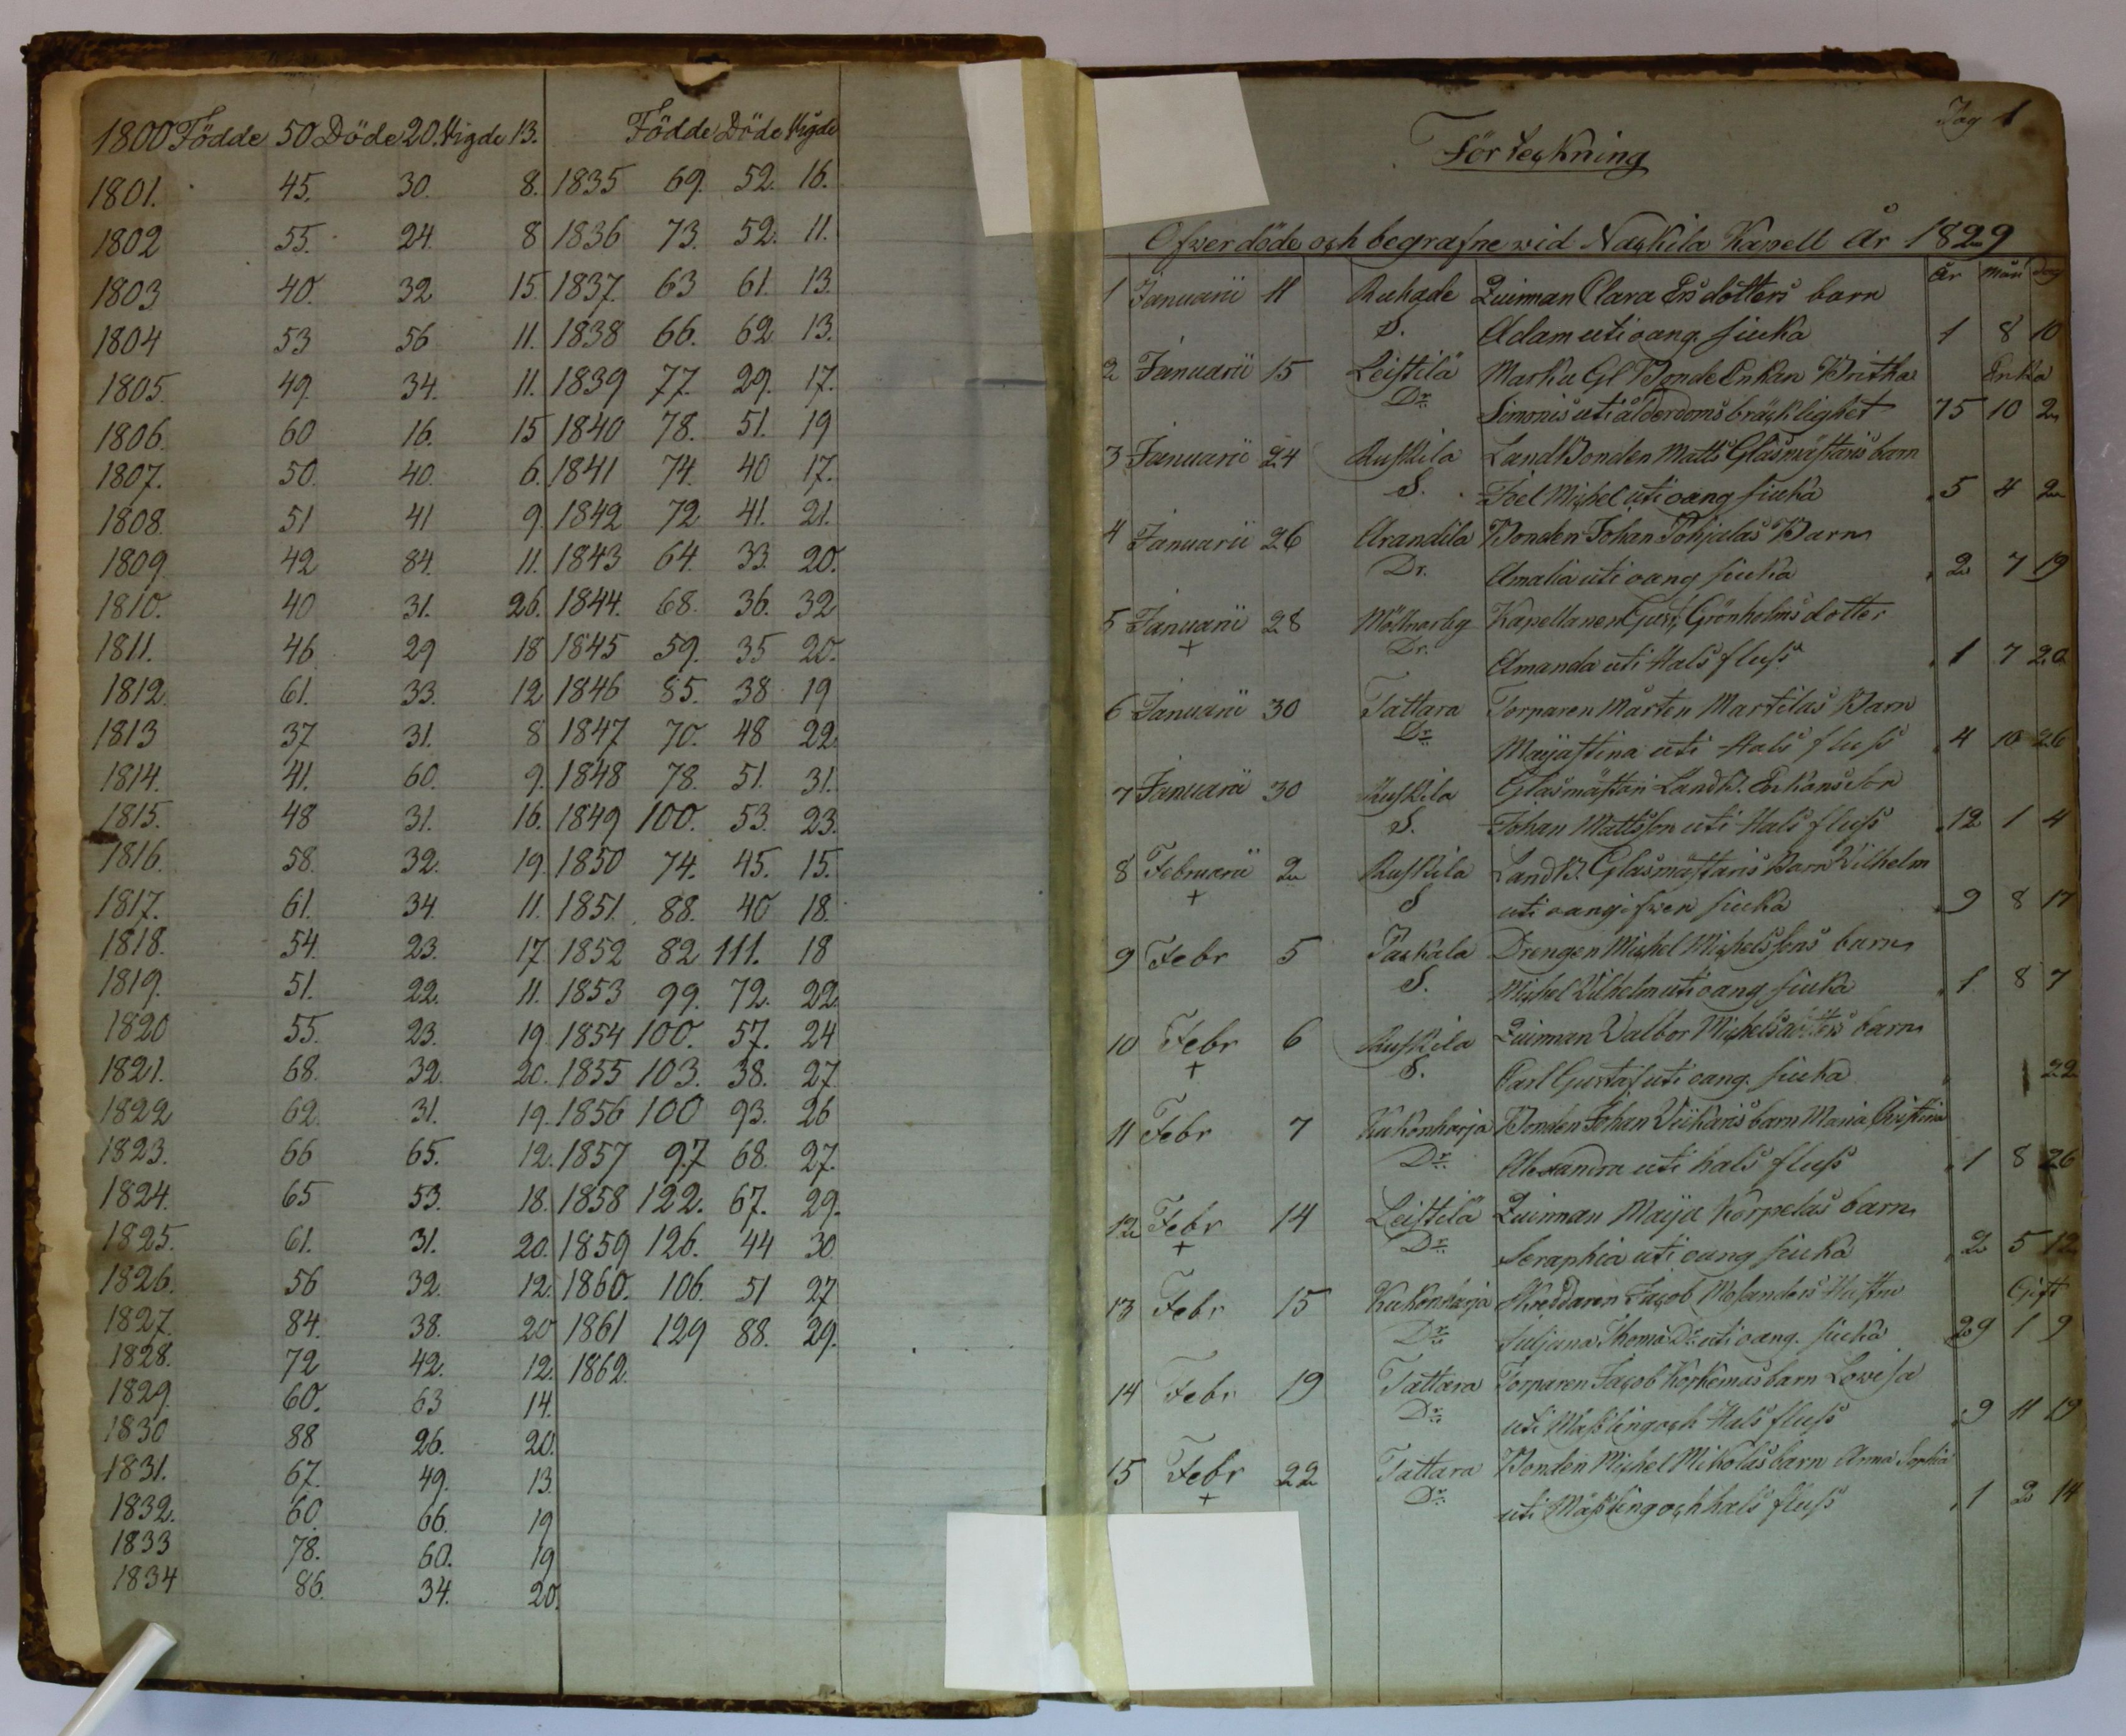 1800 Födde 50 Döde 20. Vigde 13. Födde Döde Vigde
1801. 45. 30. 8. 1835 69. 52. 16.
1802 55. 24. 8 1836 73. 52. 11.
1803 40. 32 15. 1837. 63 61. 13.
1804 53 56 11. 1838 66. 62 13.
1805. 49. 34. 11. 1839 77. 29. 17.
1806. 60 16. 15 1840 78. 51. 19
1807. 50. 40. 6. 1841 74. 40 17.
1808. 51 41 9. 1842 72 41. 21.
1809. 42 84. 11. 1843 64. 33. 20.
1810. 40 31. 26. 1844. 68. 36. 32
1811. 46 29 18 1845 59. 35 20.
1812. 61. 33. 12 1846 85. 38 19
1813 37 31. 8 1847 70. 48 22.
1814. 41. 60. 9. 1848 78. 51. 31.
1815. 48 31. 16. 1849 100. 53. 23.
1816. 58. 32. 19. 1850 74. 45. 15.
1817. 61. 34. 11. 1851. 88. 40 18.
1818. 54. 23. 17 1852 82 111. 18
1819. 51. 22. 11. 1853 99. 72. 22.
1820 55. 23. 19. 1854 100. 57. 24
1821. 68. 32. 20. 1855 103. 38. 27
1822 62. 31. 19. 1856 100 93. 26
1823. 66 65. 12. 1857 97 68. 27.
1824. 65 53. 18. 1858 122. 67. 29.
1825. 61. 31. 20. 1859 126. 44 30
1826. 56 32. 12. 1860. 106. 51 27
1827. 84. 38. 20 1861 129 88. 29.
1828. 72 42. 12. 1862.
1829. 60. 63 14.
1830 88 26. 20.
1831. 67. 49. 13.
1832. 60. 66. 19
1833 78. 60. 19
1834 86. 34. 20.
1
Förteckning
Öfwer döde och begrafne wid Nackila Kapell År 1829
År Mån Dag
1 Januarii 11 Ruhade Quinnan Clara Ersdotters barn
S. Adam uti oang. siuka 1 8 10
2 Januarii 15 Leistilä Marku Gl Bonde Enkan Britha Enka
Dr. Simonis uti ålderdoms bräcklighet 75 10 2
3 Januarii 24 Ruskila LandBonden Matts Glasmästaris barn
S. Joel Michel uti oang siuka 5 4 2
4 Januarii 26 Arandila Bonden Johan Pohjalas Barn
Dr. Amalia uti oang siuka 2 7 19
5 Januarii 28 Kapellanen Gust. Grönholms dotter
+ Dr. Amanda uti Hals fluss 1 7 20
6 Januarii 30 Tattara Torparen Mårten Martilas Barn
Dr. Maijastina uti Hals fluss 4 10 26
7 Januarii 30 Ruskila Glasmästari LandB. Enkans son
S. Johan Mattsson uti Hals fluss 12 1 4
8 Februarii 2 Ruskila LandB. Glasmästaris Barn Wilhelm
+ S uti oangifwen siuka 9 8 17
9 Febr 5 Packala Drengen Michel Michelssons barn
S. Michel Wilhelm uti oang siuka 1 8 7
10 Febr 6 Ruskila Quinnan Valbor Michelsdotters barn
+ S. Carl Gustaf uti oang. siuka 22
11 Febr 7 Kukonharja Bonden Johan Wiikaris barn Maria Christina
Dr. Alexandra uti hals fluss 1 8 26
12 Febr 14 Leistilä Quinnan Maija Korpelas barn
+ Dr. Seraphia uti oang siuka 2 5 12
13 Febr 15 Kukonharja Skreddaren Jacob Mosanders Hustru Gift
Dr. Juljana Thoma Dr. uti oang. siuka 29 1 9
14 Febr 19 Tattara Torparen Jacob barn Lowisa
Dr. uti Mässling och Hals fluss 9 11 19
15 Febr 22 Tattara Bonden Michel Mikolas barn Anna Sophia
+ Dr. uti Mässling och hals fluss 1 2 14